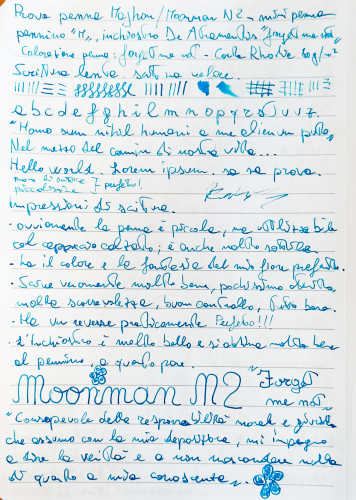 Prova penna Majhon/Moonman N2 - mini penna
pennino "M", inchiostro De Atramentis "forget me not"
Colorazione penna: forget me not - Carta Rhodia 80 g/m²
Scrittura lenta. scrittura veloce.
a b c d e f g h i l m n o p q r s t u v z.
"Homo sum nihil humani a me alienum puto"
Nel mezzo del cammin di nostra vita...
Hello world. Lorem ipsum. sa sa prova.
prova di scrittura
piccolissima È perfetto!
Impressioni di scittura.
- ovviamente la penna è piccola, ma utilizzabile
col cappuccio calzato; è anche molto sottile
- ha il colore e la fantasia del mio fiore preferito.
- Scrive veramente molto bene, pochissimo attrito,
molta scorrevolezza, buon controllo, tutto bene.
- Ha un reverse praticamente Perfetto!!!
- L'inchiostro è molto bello e si abbina molto bene
al pennino, a quanto pare.
Moonman N2 "Forget
me not"
"Consapevole della responsabilità morale e giuridica
che assumo con la mia deposizione, mi impegno
a dire la verità e a non nascondere nulla
di quanto a mia conoscenza."